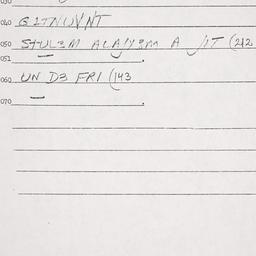 040 G2TNUVNT
050 STUL3M ALA/Y3M A JIT (242
051
060 UN D3 FRI (143
070